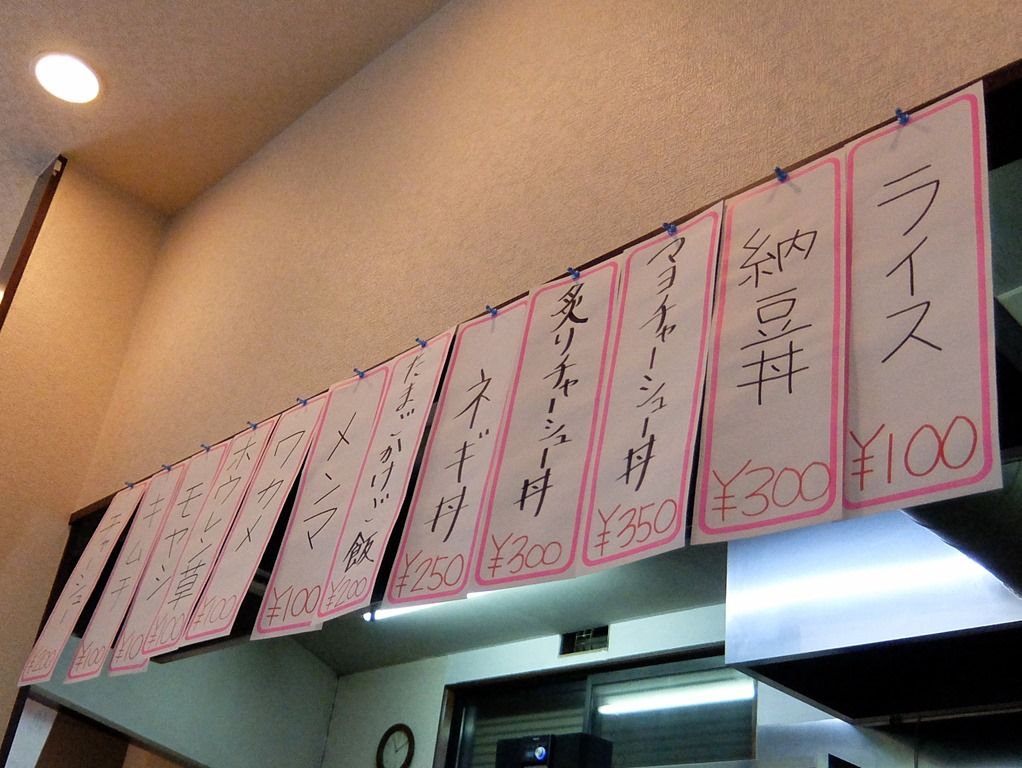 ライス
¥100
納豆丼
¥300
マヨチャーシュー丼
¥350
炙りチャーシュー丼
¥300
ネギ丼
¥250
たまごかけご飯
¥200
メンマ
¥100
ワカメ
¥100
ホウレン草
¥100
モヤシ
¥100
キムチ
¥100
チャーシュー
¥200